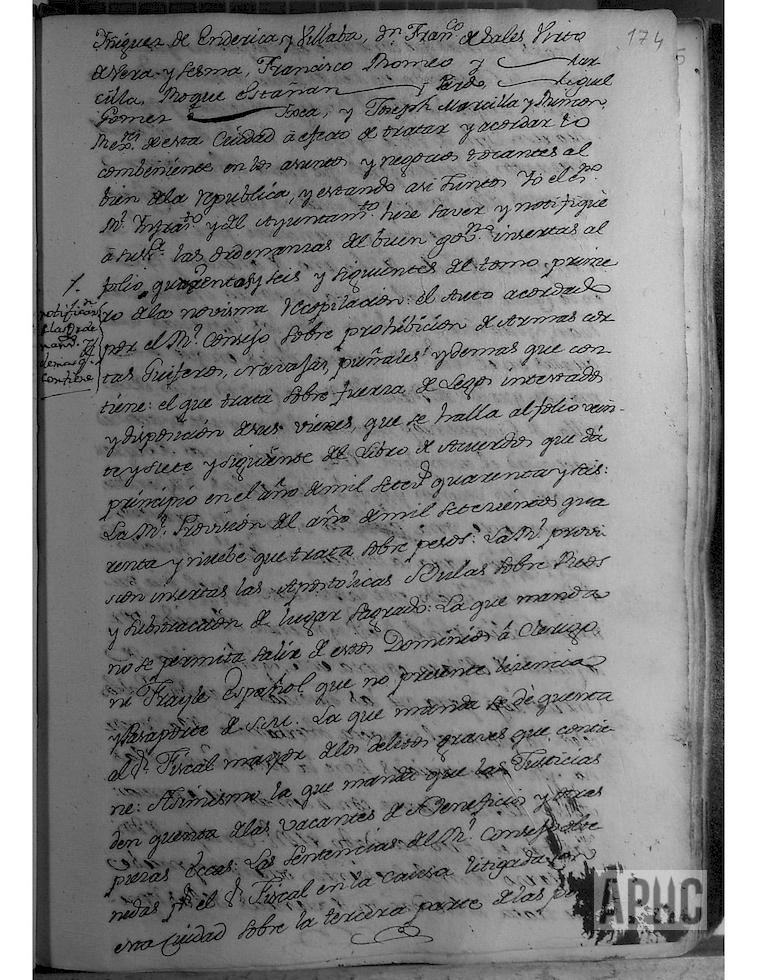 174
Yñiguez de Enderica, y Villaba, dn Franco de Sales Prito
de Vera y Lesma, Francisco Romeo y
cilla, Roque Estañan y Pardo, Miguel
Gomez Roca, y Joseph Marcilla y Muñoz,
de esta Ciudad à efecto de tratar y acordar lo
combeniente en los asuntos y negocios tocantes al
bien dela Republica, y estando asi Juntos Yo el
y del Ayuntamto hize saver y notifiqué
las ordenanzas del buen govno insertas al
folio quarenta y seis y siguientes del tomo prime
ro dela novisma Recopilacion: el Auto acordado
por el Rl Consejo sobre prohibicion de Armas cor
tas Guiferos, Navajas, puñales y demas que con-
tiene: el que trata sobre fuerza de Legos intestados
y disposicion desus vienes, que se halla al folio vein-
te y siete y siguiente del Libro de Acuerdos que dá
principio en el año de mil setecs quarenta y seis:
La Rl Provision del año de mil setecientos qua
renta y nuebe que trata sobre pesos: La Rl provi
sion insertas las Apostolicas Bulas sobre Reos
y substraccion de lugar sagrado: La que manda
no se permita salir de estos Dominios à Clerigo,
ni Frayle Español que no presente lizencia
y Pasaporte de S.M. La que manda se dé quenta
al Sr Fiscal mayor delos delitos graves que contie
ne: Asimismo la que manda que las Justicias
den quenta delas vacantes de Beneficio y otras
piezas Eccas: Las Sentencias del Rl Consejo obte
nidas pr el Sr Fiscal en la causa litigada con
esta Ciudad sobre la tercera parte delas
1.
notificaron
las Orde
nanzs. y
demas q.
contiene
APHC